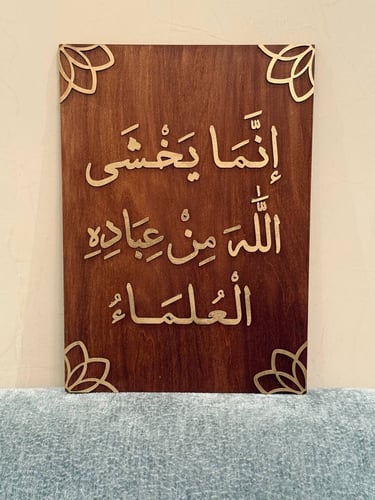 إِنَّمَا يَخْشَى
اللَّهَ مِنْ عِبَادِهِ
الْعُلَمَاءُ